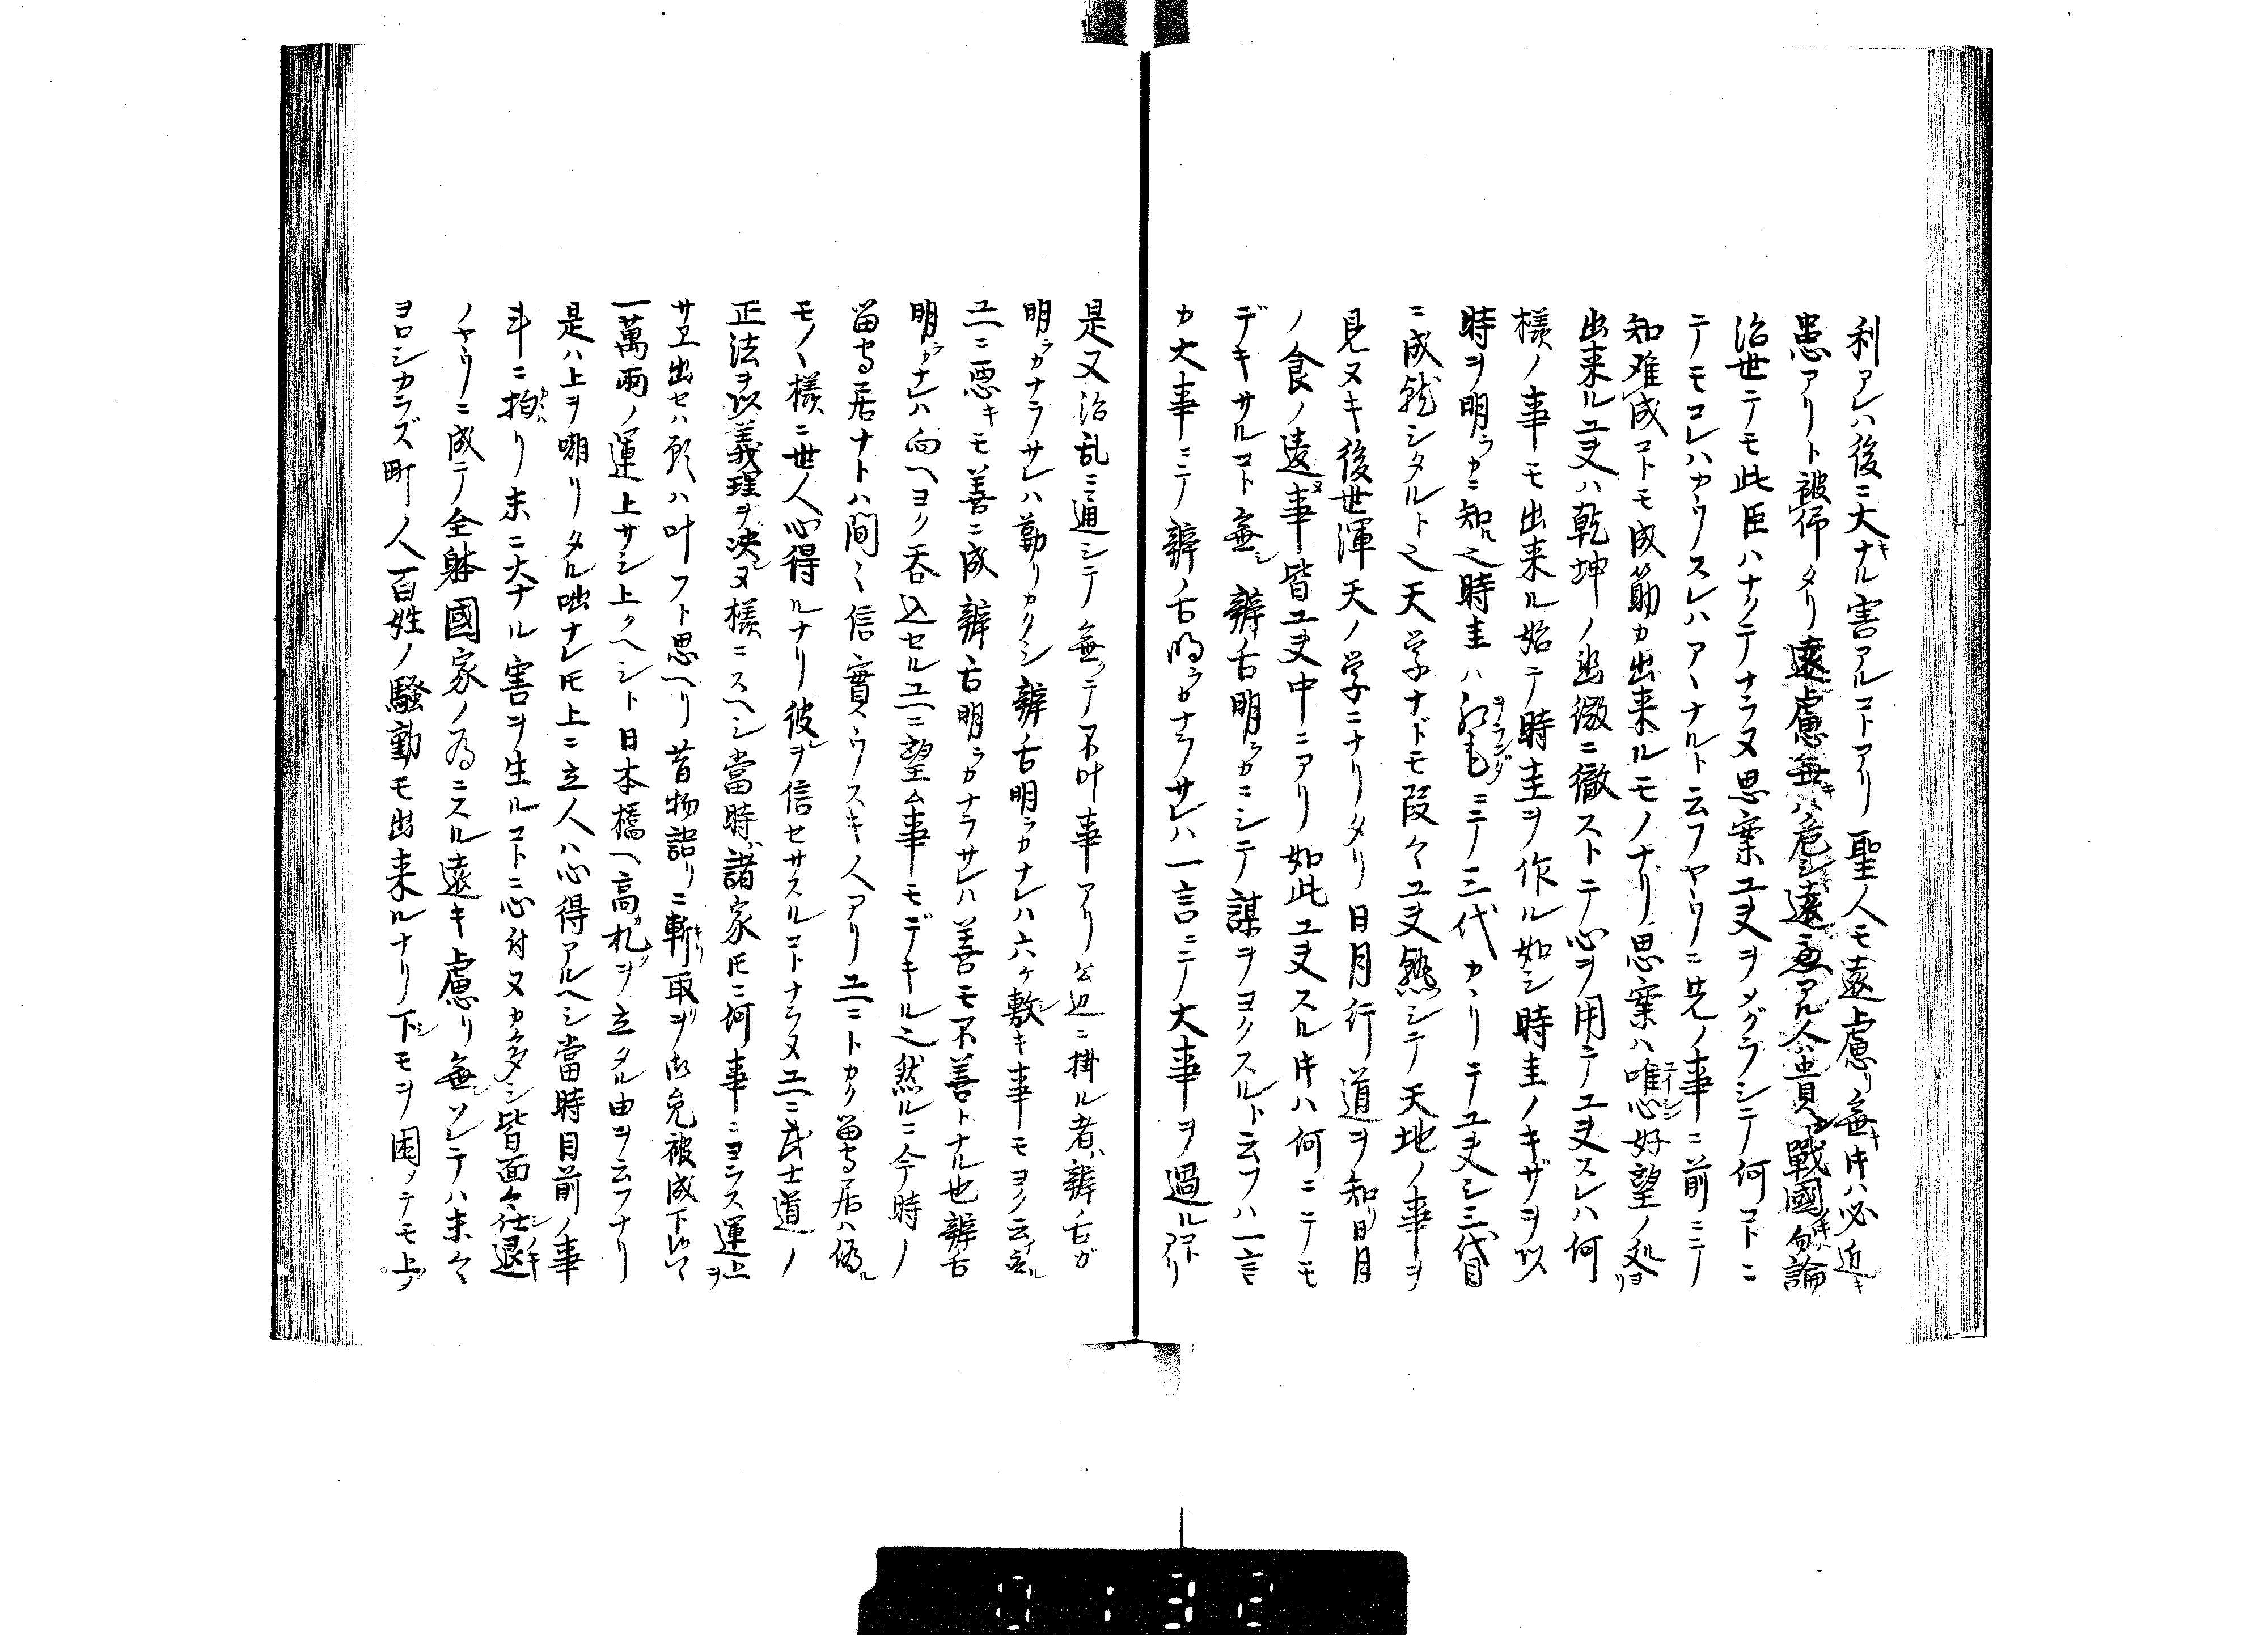 利アレハ後ニ大キナル害アルコトアリ聖人モ遠慮リ無キ𪜈ハ必近キ
患アリト被仰タリ遠慮無キハ危シ遠慮アル人ハ貴シ戰國ノキハ勿論
治世ニテモ此臣ハナクテナラヌ思案エ夫ヲメグラシテ何コトニ
テモコレハカウスレハアヽナルト云フヤウニ先ノ事ニ前ニテ
知難成コトモ成筋カ出来ルモノナリ思案ハ唯心好望ノ処ヨリ
出来ルエ夫ハ乾坤ノ幽微ニ徹ストテ心ヲ用テエ夫スレハ何
様ノ事モ出来ル始テ時圭ヲ作ル如シ時圭ノキザヲ以
時ヲ明ラカニ知ル之時圭ハ紅毛ヲランダニテ三代カヽリテエ夫シ三代目
ニ成就シタルト之天学ナドモ段々エ夫熟シテ天地ノ事ヲ
見ヌキ後世渾天ノ学ニナリタリ日月行道ヲ知リ日月
ノ食ノ違ヌ事皆エ夫中ニアリ如此エ夫スル𪜈ハ何ニテモ
デキサルコト無シ辨舌明ラカニシテ謀ヲヨクスルト云フハ一言
カ大事ニテ辨ノ舌明ラカナラサレハ一言ニテ大事ヲ過ルコトアリ
是又治乱ニ通シテ無テ不叶事アリ公辺ニ掛ル者ハ辨ノ舌ガ
明ラカナラサレハ勤リカタシ辨舌明ラカナレハ六ケ敷キ事モヨク云
ユヘニ悪キモ善ニ成辨舌明ラカナラサレハ善モ不善トナル也辨舌
明ラカナレハ向ヘヨク呑込セルユヘニ望ム事モデキル之然ルニ今時ノ
留守居ナトハ間々信實ウスキ人アリユヘニトカク留守居ハ偽ル
モノヽ様ニ世人心得ルナリ彼レヲ信セサスルコトナラヌユヘニ武士道ノ
正法ヲ以義理ヲ決シヌ様ニスヘシ當時ハ諸家𪜈ニ何事ニヨラス運上ヲ
サヱ出セハ願ハ叶フト思ヘリ昔物語リニ斬リ取ヲ御免被成下候ハヽ
一萬両ノ運上サシ上クヘシト日本橋ヘ高札ヲ立タル由ヲ云フナリ
是ハ上ヲ嘲リタル咄ナレ𪜈上ニ立人ハ心得アルヘシ當時目前ノ事
斗ニ拘リ末ニ大ナル害ヲ生ルコトニ心付ヌカ多シ皆面々仕退シノキ
ノヤウニ成テ全躰國家ノ為ニスル遠キ慮リ無シソレテハ末々
ヨロシカラズ町人百姓ノ騒動モ出来ルナリ下シモヲ困メテモ上ノ